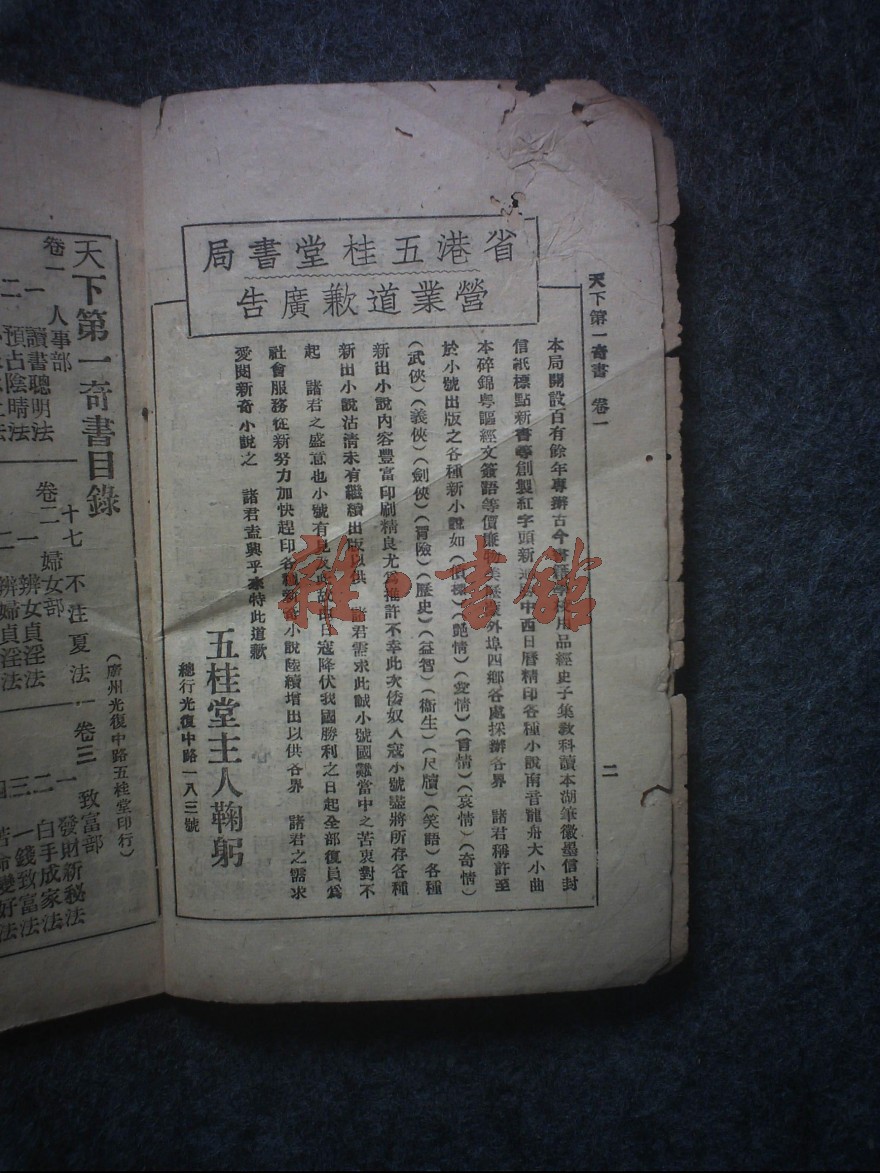 天下第一奇書 卷一
二
省港五桂堂書局
營業道歉廣告
本局開設百有餘年專辦古今書籍學校用品經史子集教科讀本湖筆徽墨信封
信紙標點新書等創製紅字頭新通書中西日曆精印各種小說南音龍舟大小曲
本碎錦粵謳經文簽語等價廉物美 外埠四鄉各處採辦各界 諸君稱許至
於小號出版之各種新小說如(偵探)(艷情)(愛情)(言情)(哀情)(奇情)
(武俠)(義俠)(劍俠)(冒險)(歷史)(益智)(衞生)(尺牘)(笑語)各種
新出小說內容豐富印刷精良尤為推許不幸此次倭奴入寇小號盡將所存各種
新出小說沽清未有繼續出版以供 諸君需求此誠小號國難當中之苦衷對不
起 諸君之盛意也小號有見及此故由日寇降伏我國勝利之日起全部復員為
社會服務從新努力加快趕印各種新奇小說陸續增出以供各界 諸君之需求
愛閱新奇小說之 諸君盍興乎來特此道歉
五桂堂主人鞠躬
總行光復中路一八三號
(廣州光復中路五桂堂印行)
天下第一奇書目錄
卷一 人事部
一 讀書聰明法
二 預占陰晴法
十七 不注夏法
卷二 婦女部
一 辨女貞淫法
二 辨婦貞淫法
卷三 致富部
一 發財新秘法
二 白手成家法
三 一錢致富法
四 苦命變好法
雜·書館